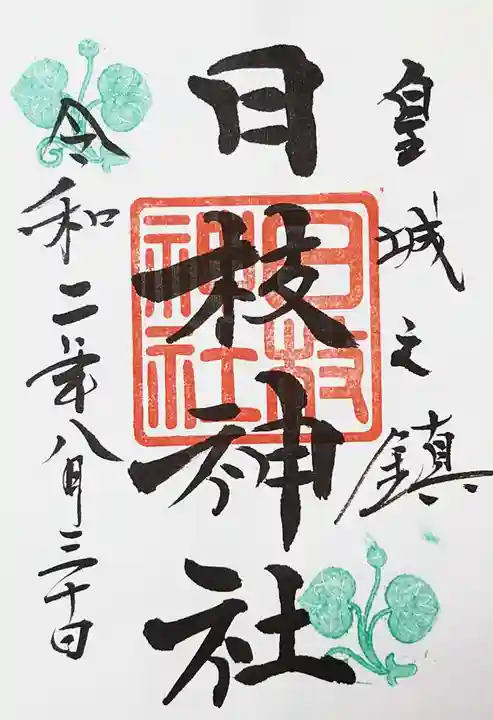 皇城之鎮
日枝神社
日枝
神社
令和二年八月三十日